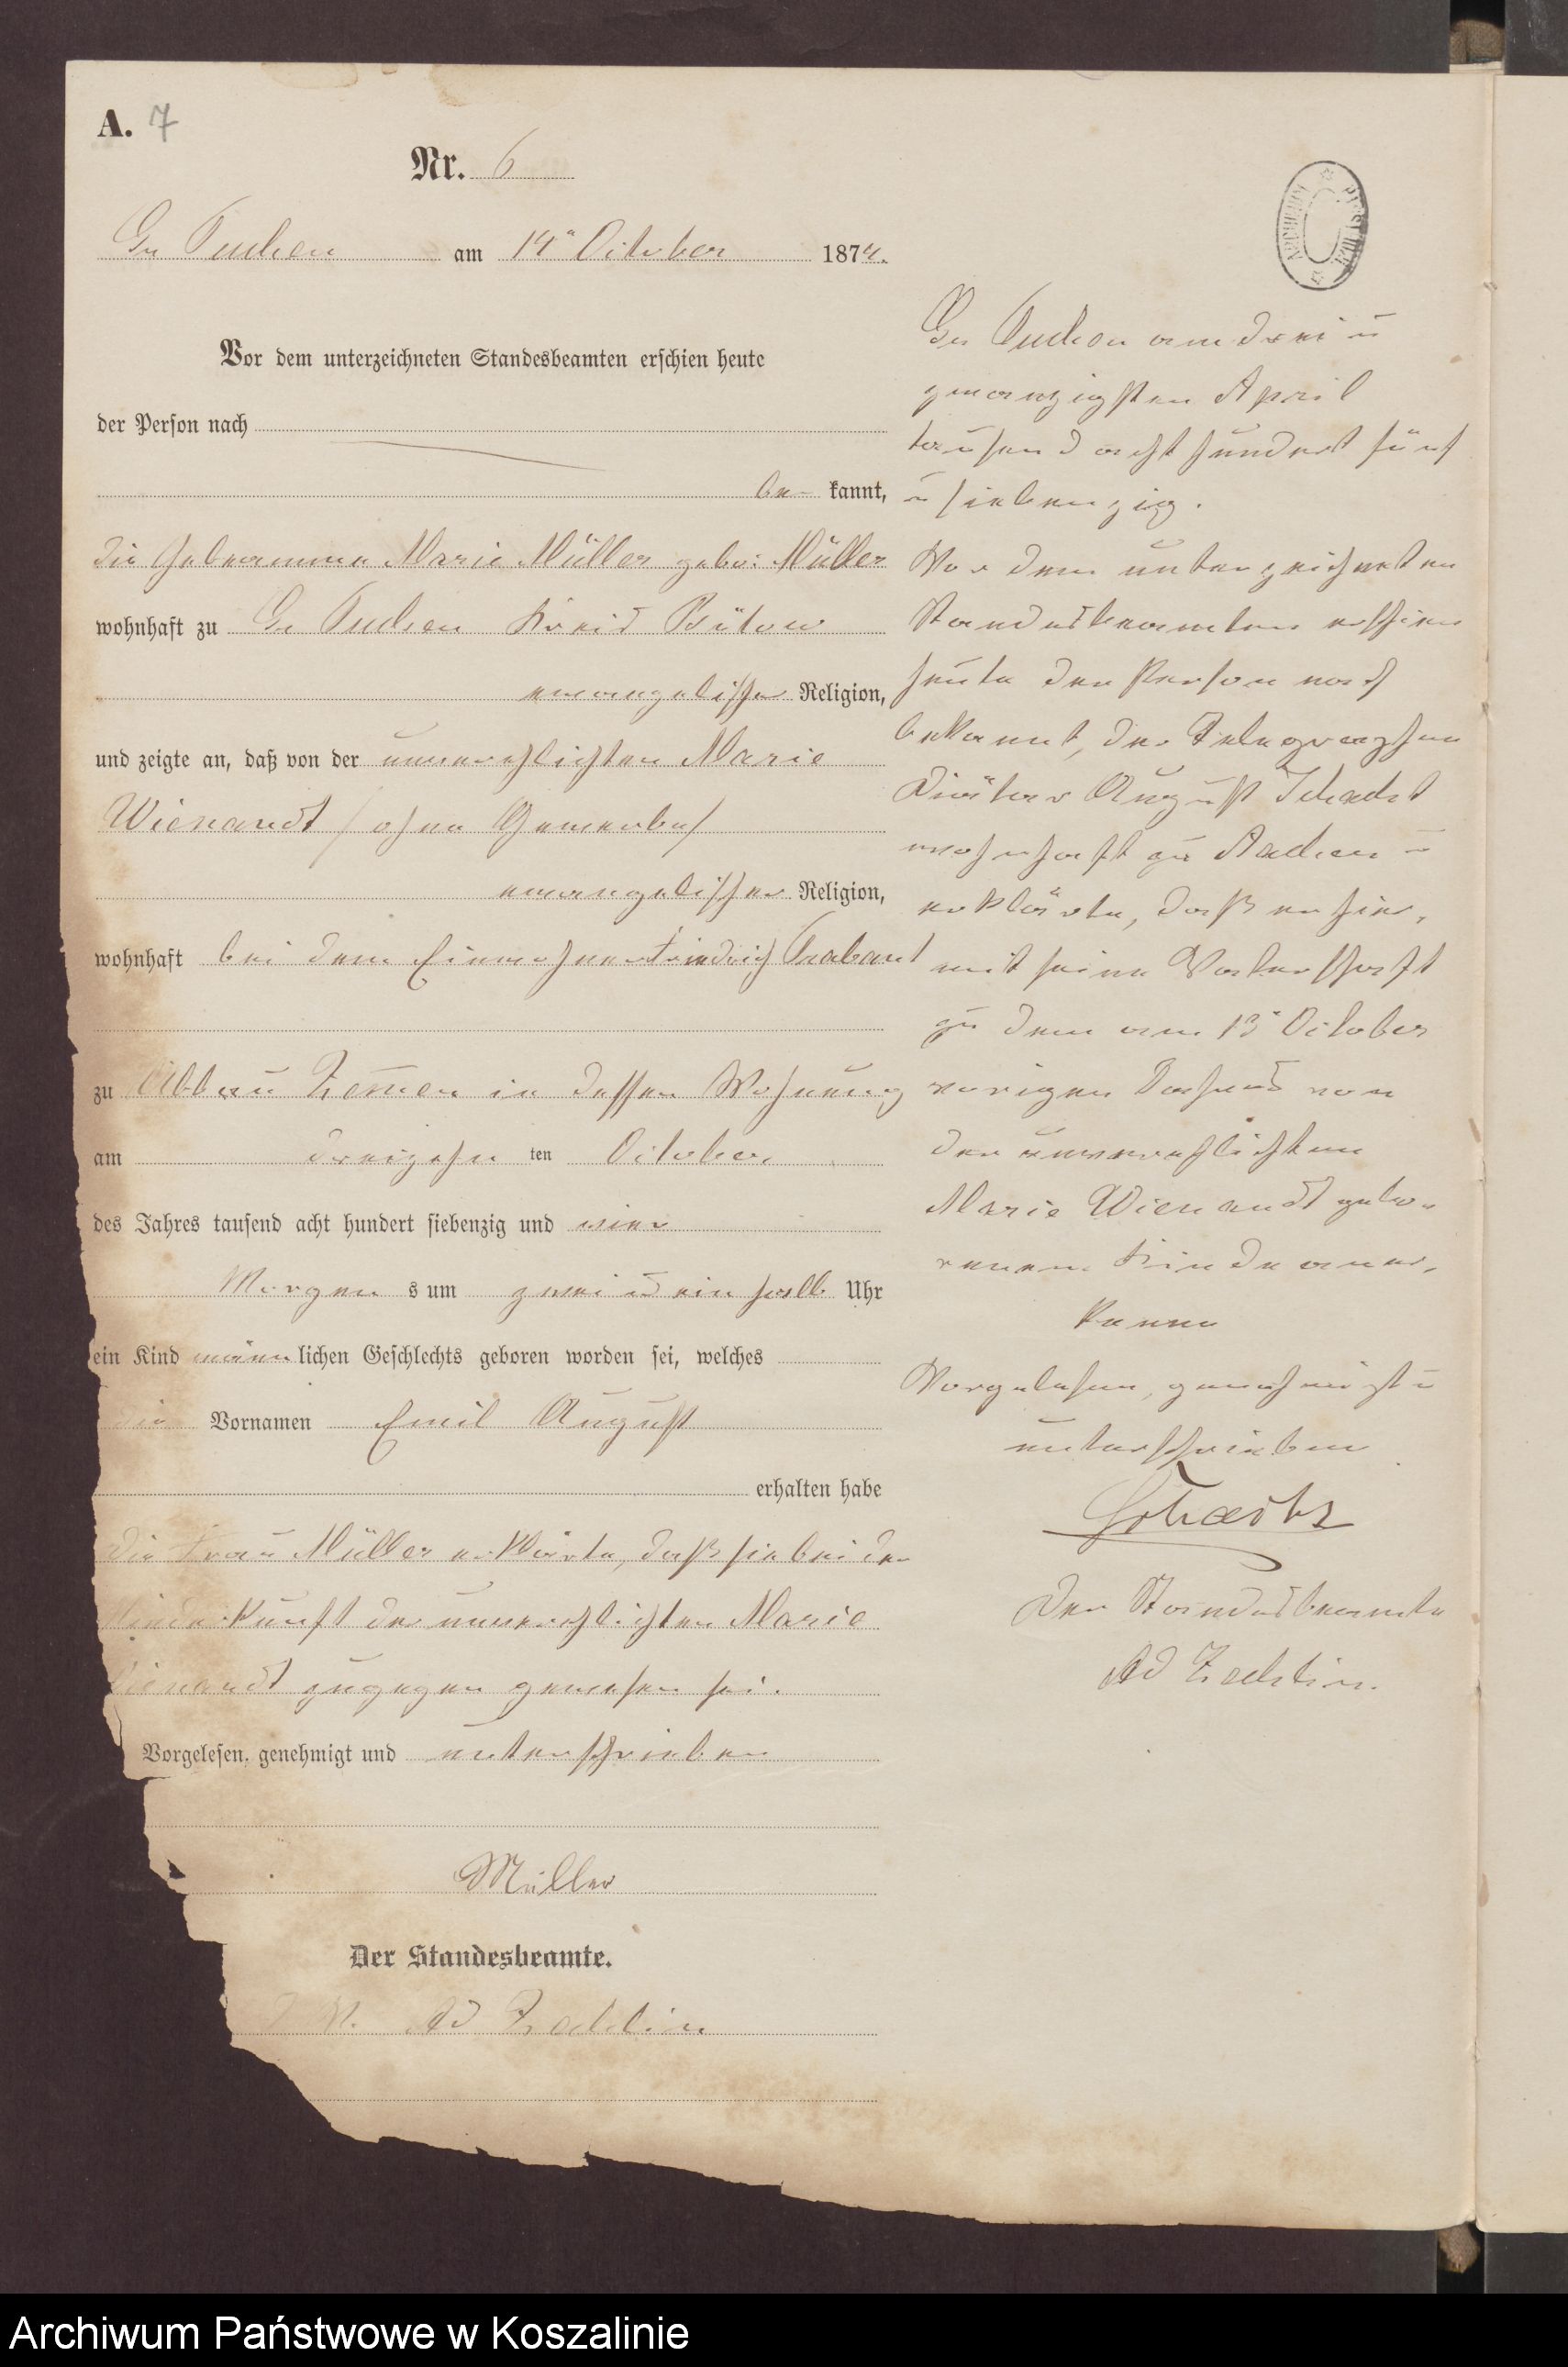 A. 7
Nr. 6
Gr Tuchen am 14ⁿ October 1874.
Vor dem unterzeichneten Standesbeamten erschien heute
der Person nach
be kannt,
die Hebeamme Marie Müller gebo: Müller
wohnhaft zu Gr Tuchen Kreis Bütow
evangelischer Religion,
und zeigte an, daß von der unverehlichten Marie
Wienandt / ohne Gewerbe /
evangelischer Religion,
wohnhaft bei dem Einwohner Friedrich Trabant
zu Abbau Zem̄en in dessen Wohnung
am dreizehn ten October
des Jahres tausend acht hundert siebenzig und vier
Morgen s um zwei u ein halb Uhr
ein Kind männ lichen Geschlechts geboren worden sei, welches
die Vornamen Emil August
erhalten habe
Die Frau Müller erklärte, daß sie bei der
Niederkunft der unverehlichten Marie
Wienandt zugegen gewesen sei.
Vorgelesen, genehmigt und unterschrieben
Müller
Der Standesbeamte.
Ad
Gr Tuchen am drei u
zwanzigsten April
tausend acht hundert fünf
u siebenzig.
Vor dem unterzeichneten
Standesbeamten erschien
heute der Person nach
bekannt, der Telegraphen
Diätar August Schacht
wohnhaft zu Aachen u
erklärte, daß er hier,
mit seine Vaterschaft
zu dem am 13ⁿ October
vorigen Jahres von
der unverehlichten
Marie Wienandt gebo-
renen Kinde aner,
kenne
Vorgelesen, genehmigt u
unterschrieben
Schacht
Der Standesbeamte
Ad
ARCHIWUM
Archiwum Państwowe w Koszalinie